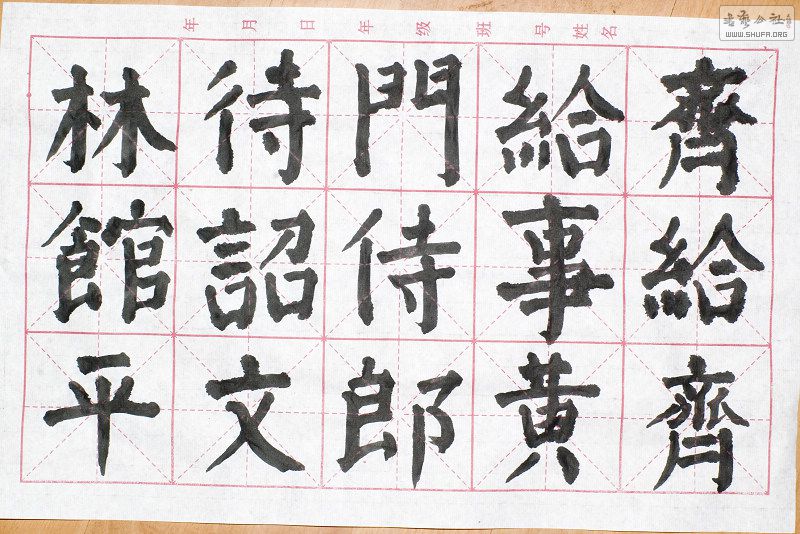 年 月 日 年 级 班 号 姓 名
齊給齊
給事黃
門侍郎
待詔文
林館平
WWW.SHUFA.ORG